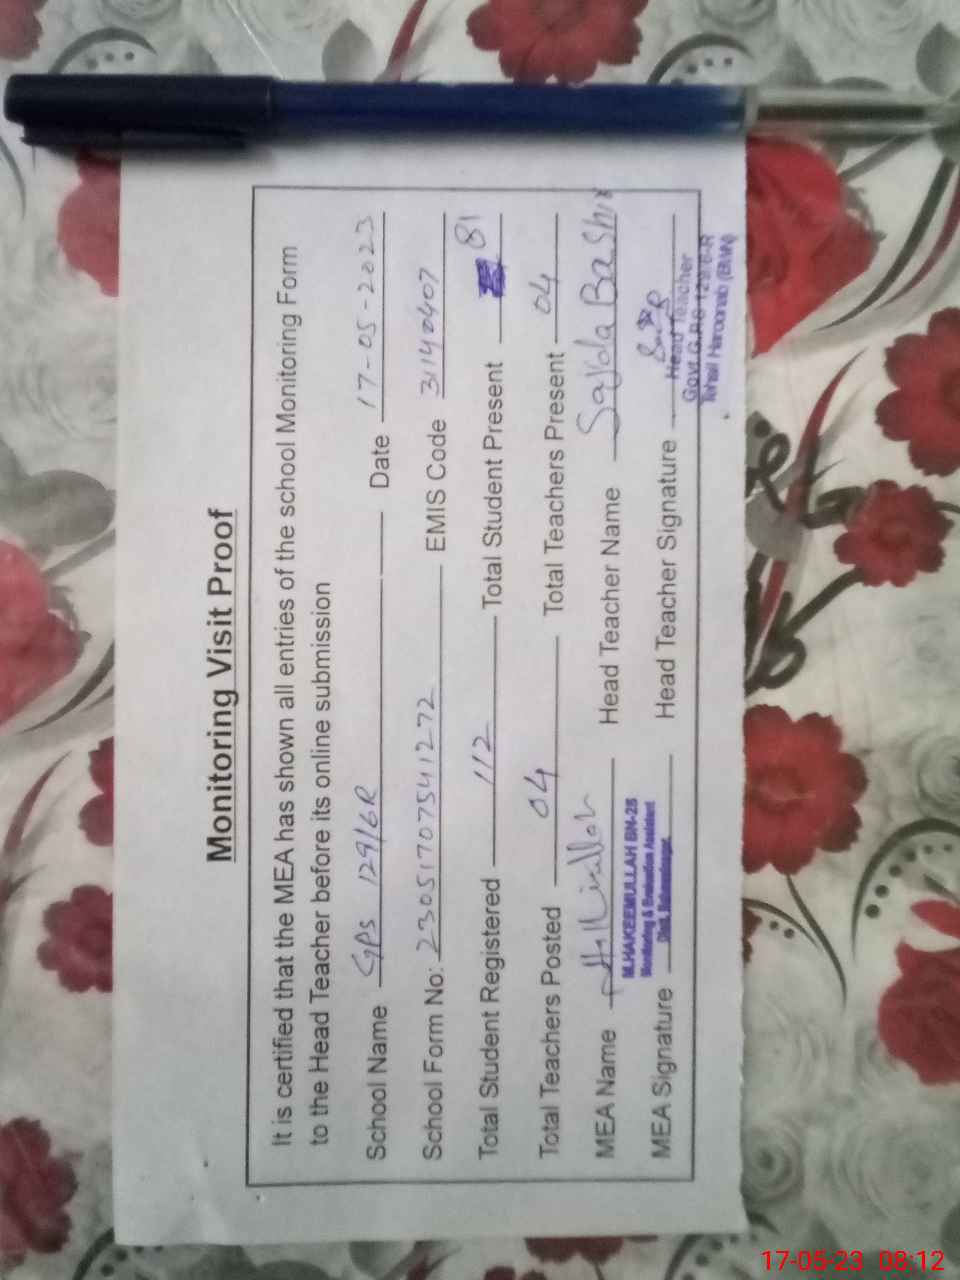 Monitoring Visit Proof
It is certified that the MEA has shown all entries of the school Monitoring Form
to the Head Teacher before its online submission
School Name GPS 129/6R Date 17-05-2023
School Form No: 23051707541272 EMIS Code 31140407
Total Student Registered 112 Total Student Present 81
Total Teachers Posted 04 Total Teachers Present 04
MEA Name Head Teacher Name Sajida Bashir
M.HAKEEMULLAH BN-28
Monitoring & Evaluation Assistant
Distt. Bahawalnagar
MEA Signature Head Teacher Signature
Head Teacher
Govt G.P.S 129/6-R
Tehsil Haroonabad (BWN)
17-05-23 08:12